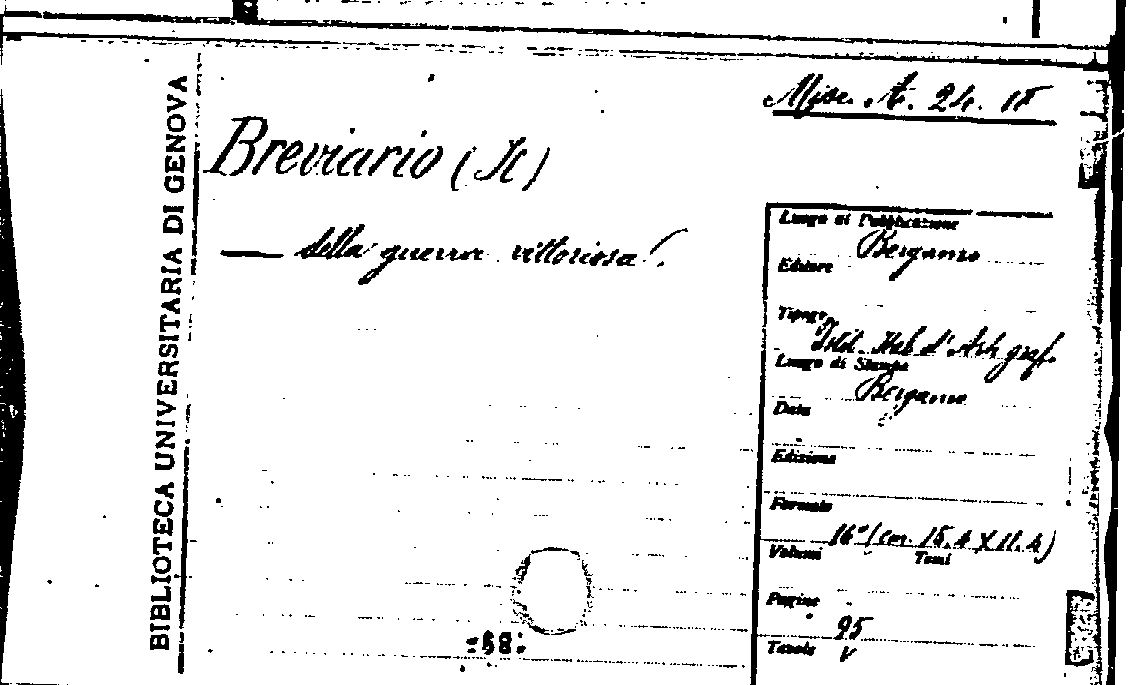 BIBLIOTECA UNIVERSITARIA DI GENOVA
Misc. A. 24. 18
Breviario (Il)
— della guerra vittoriosa.
Luogo di Pubblicazione
Bergamo
Editore
Tipogr.
Istit. Ital d'Arti graf.
Luogo di Stampa
Bergamo
Data
Edizione
Formato
16° (cm. 15.4 X 11.4)
Volumi Tomi
Pagine
95
Tavole V